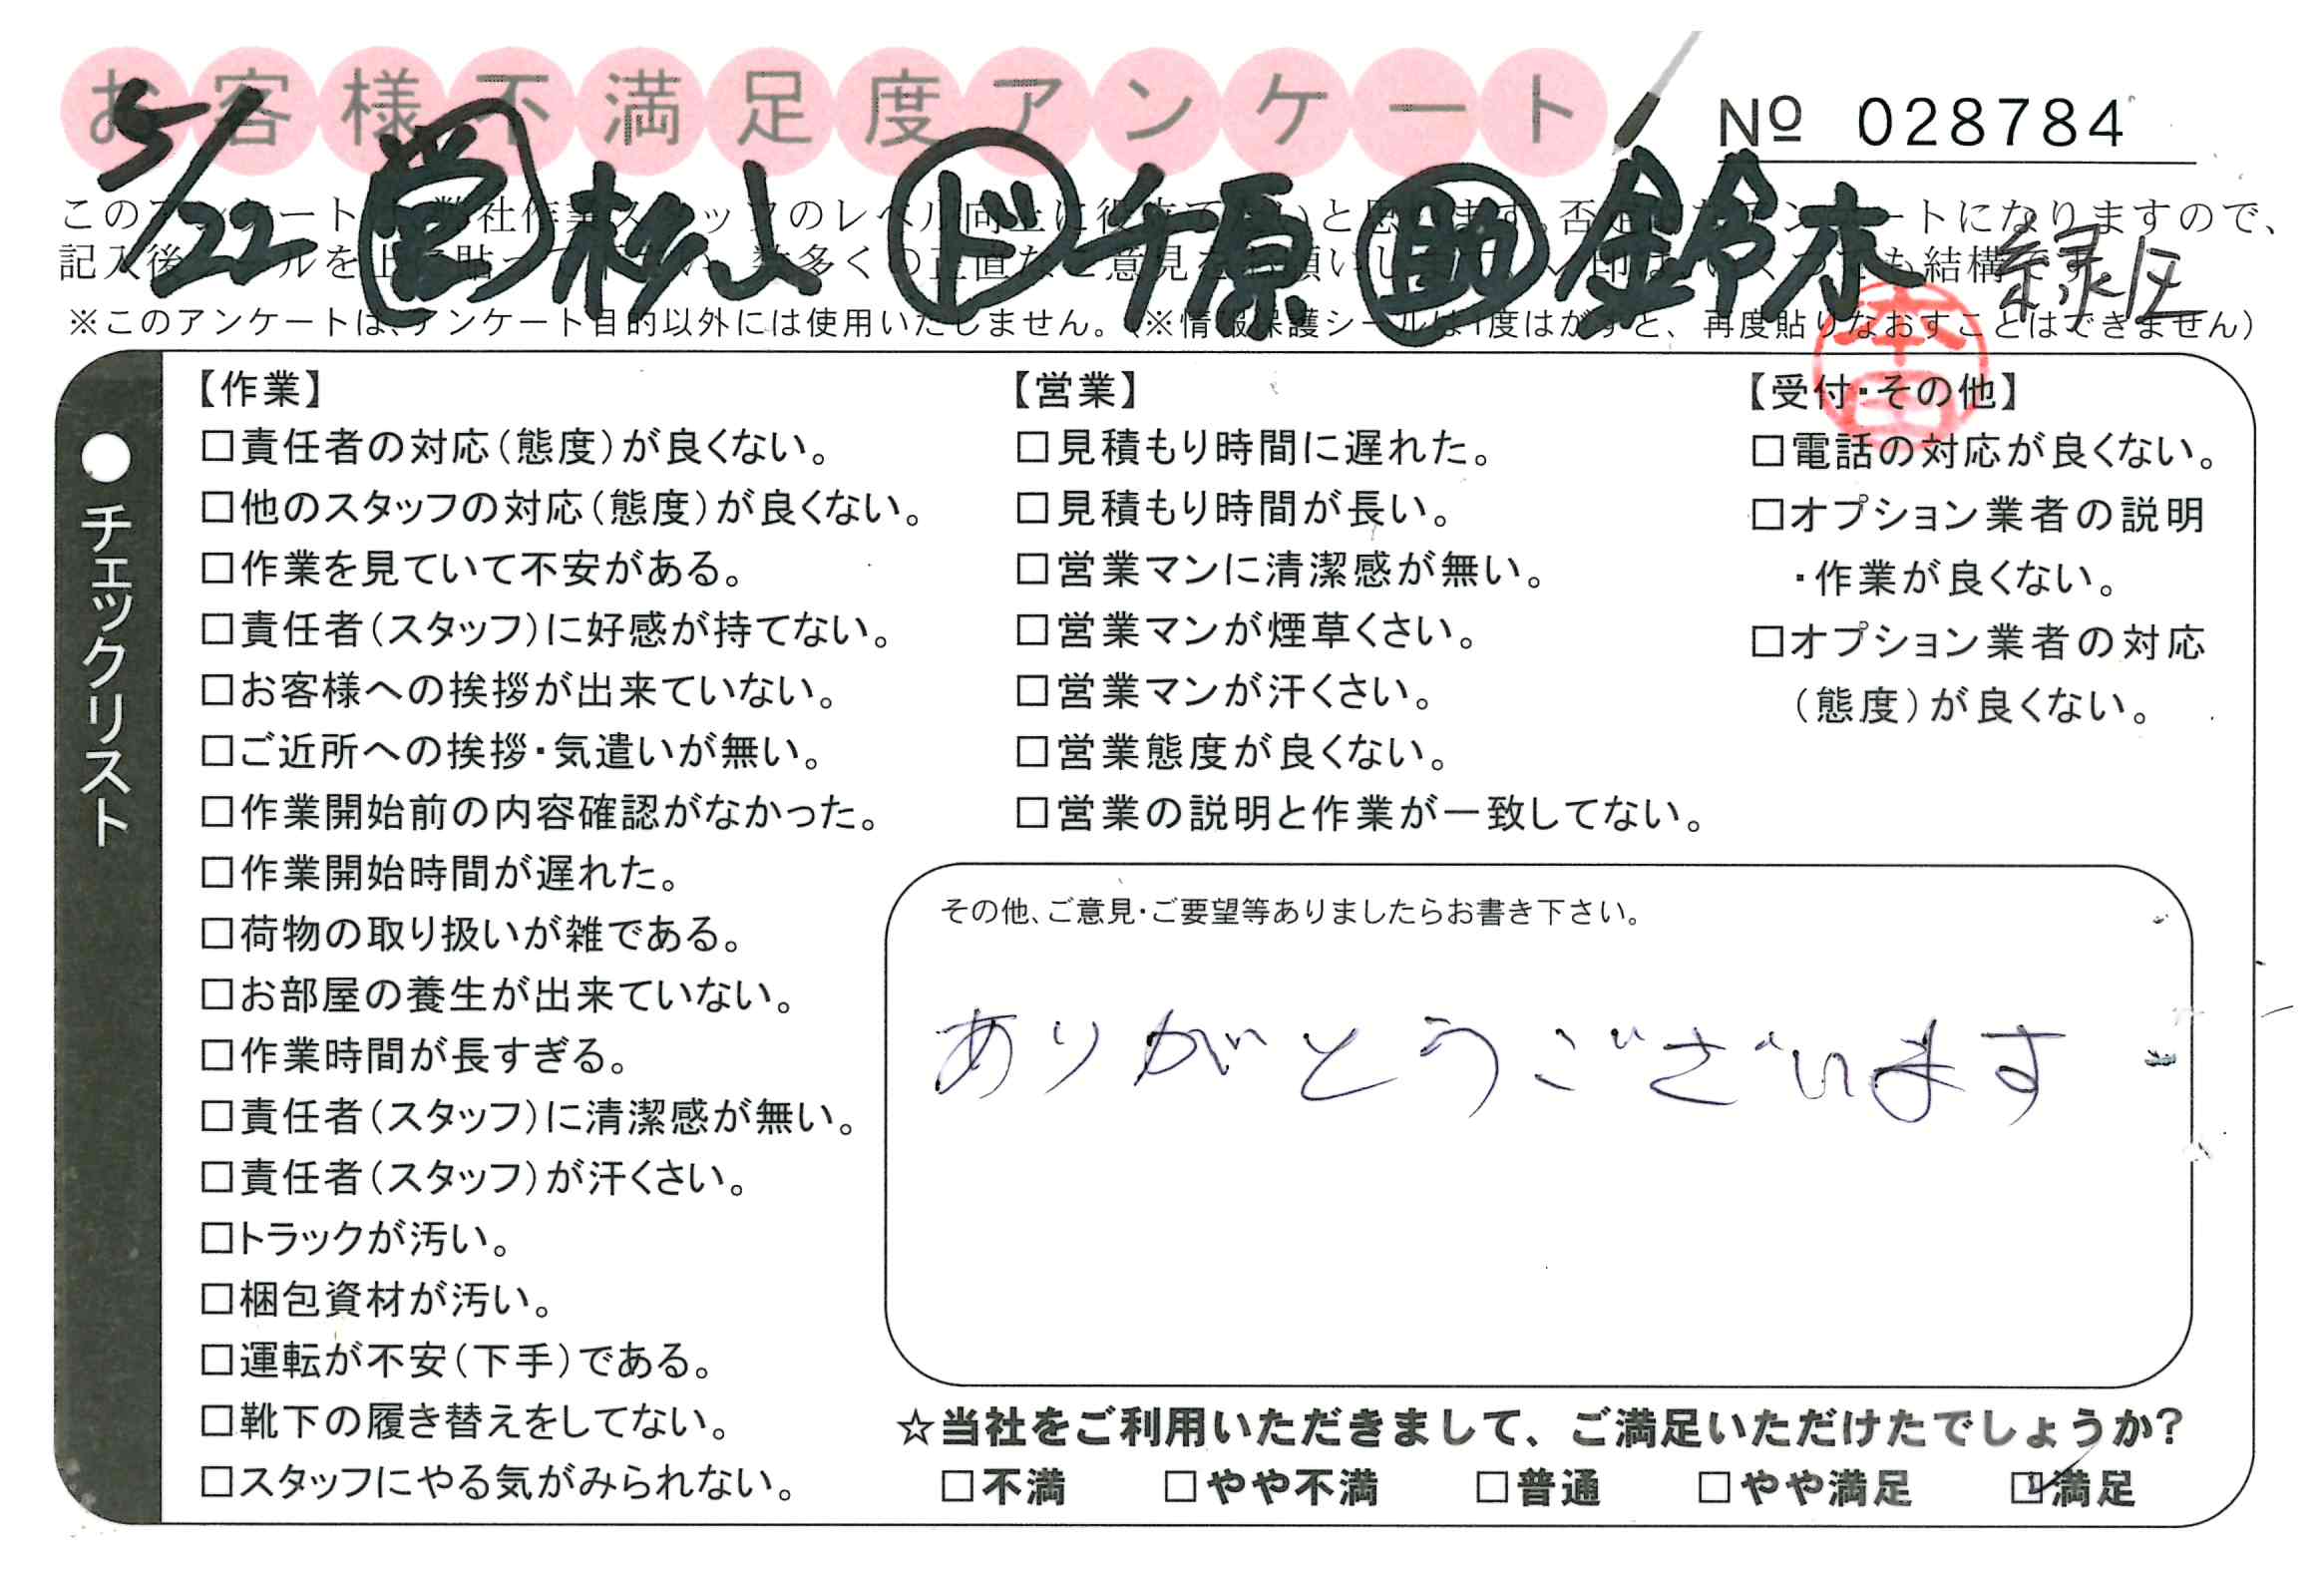 お客様不満足度アンケート
№ 028784
5/22 ㊢ 杉山 ド 千原 助 鈴木
緑区
※このアンケートは、アンケート目的以外には使用いたしません。(※情報保護シールは1度はがすと、再度貼りなおすことはできません)
本田
●チェックリスト
【作業】
□責任者の対応(態度)が良くない。
□他のスタッフの対応(態度)が良くない。
□作業を見ていて不安がある。
□責任者(スタッフ)に好感が持てない。
□お客様への挨拶が出来ていない。
□ご近所への挨拶・気遣いが無い。
□作業開始前の内容確認がなかった。
□作業開始時間が遅れた。
□荷物の取り扱いが雑である。
□お部屋の養生が出来ていない。
□作業時間が長すぎる。
□責任者(スタッフ)に清潔感が無い。
□責任者(スタッフ)が汗くさい。
□トラックが汚い。
□梱包資材が汚い。
□運転が不安(下手)である。
□靴下の履き替えをしてない。
□スタッフにやる気がみられない。
【営業】
□見積もり時間に遅れた。
□見積もり時間が長い。
□営業マンに清潔感が無い。
□営業マンが煙草くさい。
□営業マンが汗くさい。
□営業態度が良くない。
□営業の説明と作業が一致してない。
【受付・その他】
□電話の対応が良くない。
□オプション業者の説明
・作業が良くない。
□オプション業者の対応
(態度)が良くない。
その他、ご意見・ご要望等ありましたらお書き下さい。
ありがとうございます
☆当社をご利用いただきまして、ご満足いただけたでしょうか?
□不満 □やや不満 □普通 □やや満足 ☑満足